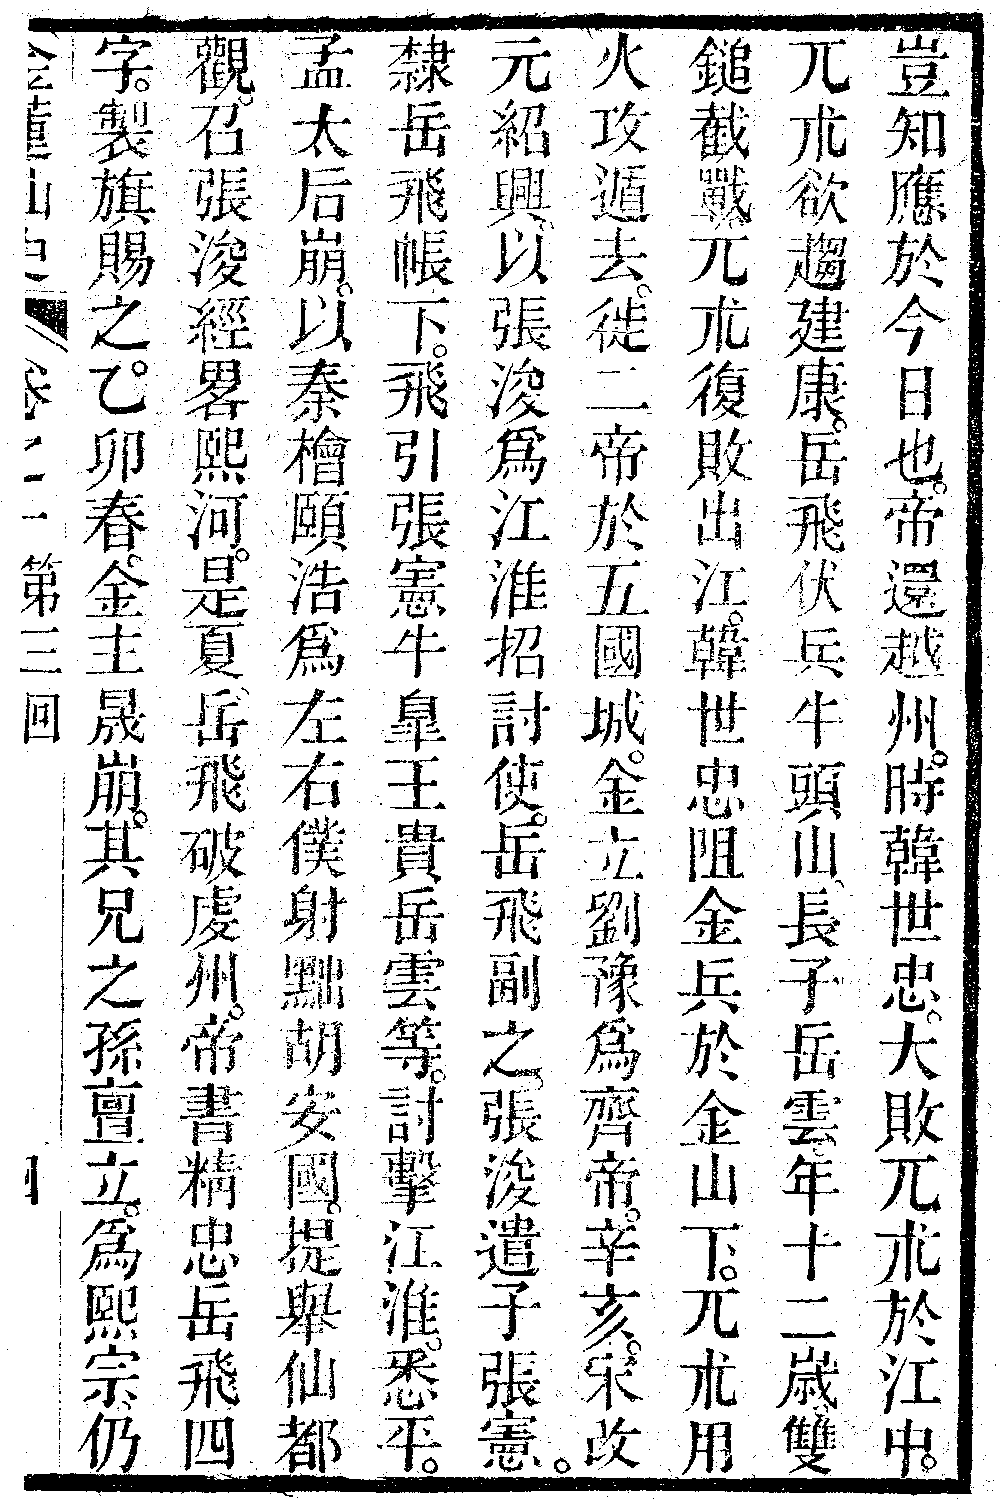 豈知應於今日也。帝還越州。時韓世忠。大敗兀朮於江中。
兀朮欲趨建康。岳飛伏兵牛頭山、長子岳雲、年十二歲、雙
鎚截戰。兀朮復敗出江。韓世忠阻金兵於金山下。兀朮用
火攻遁去。徙二帝於五國城。金立劉豫爲齊帝。辛亥。宋改
元紹興、以張浚爲江淮招討使。岳飛副之、張浚遣子張憲。
隸岳飛帳下。飛引張憲牛臯王貴岳雲等。討擊江淮。悉平。
孟太后崩。以秦檜頤浩爲左右僕射黜胡安國。提舉仙都
觀。召張浚經畧熙河。是夏、岳飛破虔州。帝書精忠岳飛四
字。製旗賜之。乙卯春。金主晟崩。其兄之孫亶立。爲熙宗、仍
卷之一 第三回